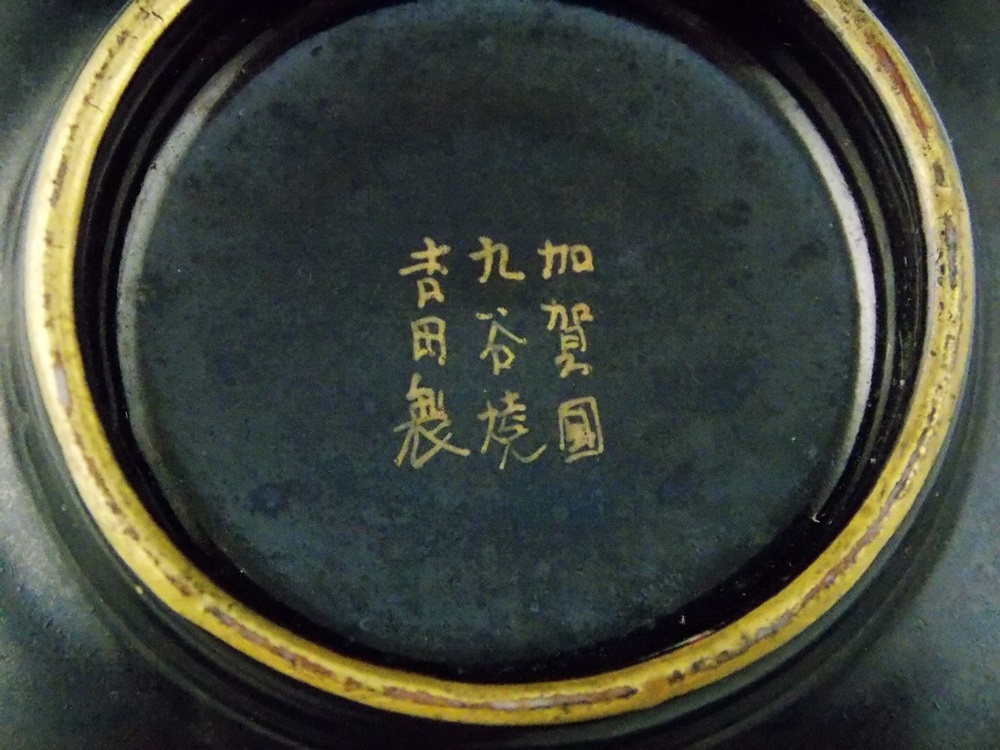 加賀國
九谷焼
吉田製